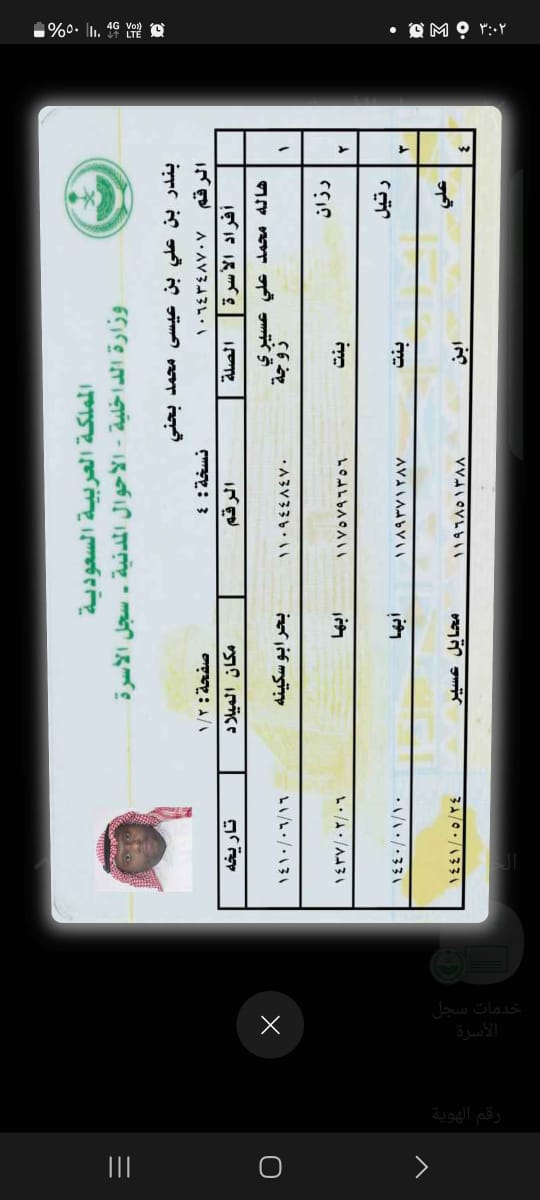 ٣:٠٢
4G
Vo)) LTE
%٥٠
المملكة العربية السعودية
وزارة الداخلية - الأحوال المدنية - سجل الأسرة
بندر بن علي بن عيسى محمد بحني
الرقم ١٠٦٤٣٤٨٧٠٧ نسخة: ٤ صفحة: ١/٢
أفراد الأسرة الصلة الرقم مكان الميلاد تاريخه
١ هاله محمد علي عسيري زوجة بحر ابو سكينه ١٤١٠/٠٦/١٦
٢ رزان بنت ١١٧٥٧٩٦٣٥٦ ابها ١٤٣٧/٠٢/٠٦
٣ رتيل بنت ١١٨٩٣٧١٢٨٧ أبها ١٤٤٠/٠١/١٠
٤ علي ابن ١١٩٦٨٥١٣٨٨ محايل عسير ١٤٤١/٠٥/٢٤
خدمات سجل
الأسرة
رقم الهوية